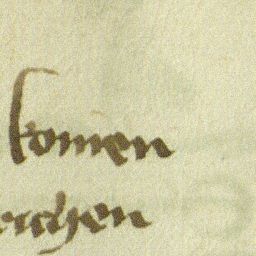 komen
erchen